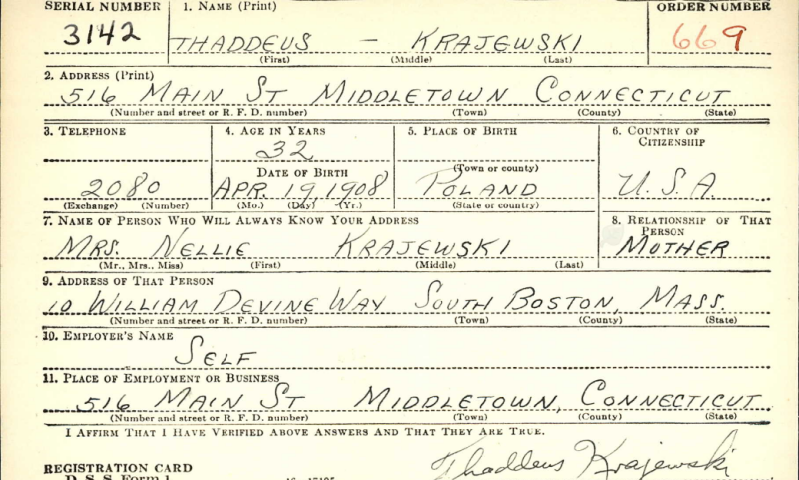 SERIAL NUMBER 1. NAME (Print) ORDER NUMBER
3142 THADDEUS — KRAJEWSKI 669
(First) (Middle) (Last)
2. ADDRESS (Print)
516 MAIN ST MIDDLETOWN CONNECTICUT
(Number and street or R. F. D. number) (Town) (County) (State)
3. TELEPHONE 4. AGE IN YEARS 5. PLACE OF BIRTH 6. COUNTRY OF CITIZENSHIP
32
DATE OF BIRTH (Town or county)
2080 APR. 19, 1908 POLAND U.S.A.
(Exchange) (Number) (Mo.) (Day) (Yr.) (State or country)
7. NAME OF PERSON WHO WILL ALWAYS KNOW YOUR ADDRESS 8. RELATIONSHIP OF THAT PERSON
MRS. NELLIE KRAJEWSKI MOTHER
(Mr., Mrs., Miss) (First) (Middle) (Last)
9. ADDRESS OF THAT PERSON
10 WILLIAM DEVINE WAY SOUTH BOSTON, MASS.
(Number and street or R. F. D. number) (Town) (County) (State)
10. EMPLOYER'S NAME
SELF
11. PLACE OF EMPLOYMENT OR BUSINESS
516 MAIN ST MIDDLETOWN, CONNECTICUT
(Number and street or R. F. D. number) (Town) (County) (State)
I AFFIRM THAT I HAVE VERIFIED ABOVE ANSWERS AND THAT THEY ARE TRUE.
REGISTRATION CARD Thaddeus Krajewski
D. S. S. Form 1